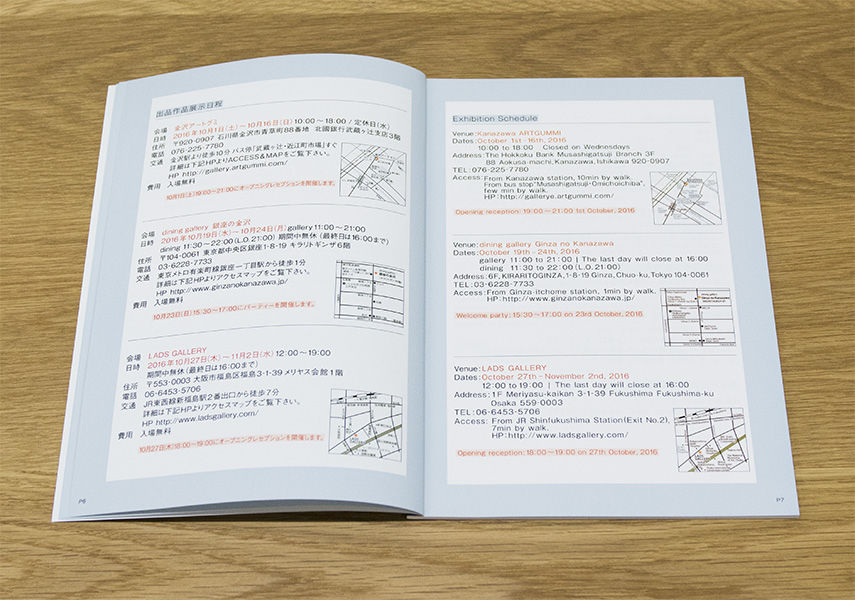 出品作品展示日程
会場 金沢アートグミ
日時 2016年10月1日(土)〜10月16日(日)10:00〜18:00 / 定休日(水)
住所 〒920-0907 石川県金沢市青草町88番地 北國銀行武蔵ヶ辻支店3階
電話 076-225-7780
交通 金沢駅より徒歩10分 バス停「武蔵ヶ辻・近江町市場」すぐ
詳細は下記HPよりACCESS&MAPをご覧下さい。
HP http://gallery.artgummi.com/
費用 入場無料
10月1日(土)19:00〜21:00にオープニングレセプションを開催します。
会場 dining gallery 銀座の金沢
日時 2016年10月19日(水)〜10月24日(月)gallery 11:00〜21:00
dining 11:30〜22:00(L.O.21:00) 期間中無休(最終日は16:00まで)
住所 〒104-0061 東京都中央区銀座1-8-19 キラリトギンザ6階
電話 03-6228-7733
交通 東京メトロ有楽町線銀座一丁目駅から徒歩1分
詳細は下記HPよりアクセスマップをご覧下さい。
HP http://www.ginzanokanazawa.jp/
費用 入場無料
10月23日(日)15:30〜17:00にパーティーを開催します。
会場 LADS GALLERY
日時 2016年10月27日(木)〜11月2日(水)12:00〜19:00
期間中無休(最終日は16:00まで)
住所 〒553-0003 大阪市福島区福島3-1-39 メリヤス会館1階
電話 06-6453-5706
交通 JR東西線新福島駅2番出口から徒歩7分
詳細は下記HPよりアクセスマップをご覧下さい。
HP http://www.ladsgallery.com/
費用 入場無料
10月27日(木)18:00〜19:00にオープニングレセプションを開催します。
P6
Exhibition Schedule
Venue:Kanazawa ARTGUMMI
Dates:October 1st-16th, 2016
10:00 to 18:00 Closed on Wednesdays
Address:The Hokkoku Bank Musashigatsuji Branch 3F
88 Aokusa-machi, Kanazawa, Ishikawa 920-0907
TEL:076-225-7780
Access:From Kanazawa station, 10min by walk.
From bus stop"Musashigatsuji-Omichoichiba",
few min by walk.
HP:http://gallerye.artgummi.com/
Opening reception:19:00〜21:00 1st October, 2016
Venue:dining gallery Ginza no Kanazawa
Dates:October 19th-24th, 2016
gallery 11:00 to 21:00 | The last day will close at 16:00
dining 11:30 to 22:00 (L.O.21:00)
Address:6F,KIRARITOGINZA,1-8-19 Ginza,Chuo-ku,Tokyo 104-0061
TEL:03-6228-7733
Access:From Ginza-itchome station, 1min by walk.
HP:http://www.ginzanokanazawa.jp/
Welcome party:15:30〜17:00 on 23rd October, 2016
Venue:LADS GALLERY
Dates:October 27th-November 2nd, 2016
12:00 to 19:00 | The last day will close at 16:00
Address:1F Meriyasu-kaikan 3-1-39 Fukushima Fukushima-ku
Osaka 559-0003
TEL:06-6453-5706
Access: From JR Shinfukushima Station(Exit No.2),
7min by walk.
HP:http://www.ladsgallery.com/
Opening reception:18:00〜19:00 on 27th October, 2016
P7